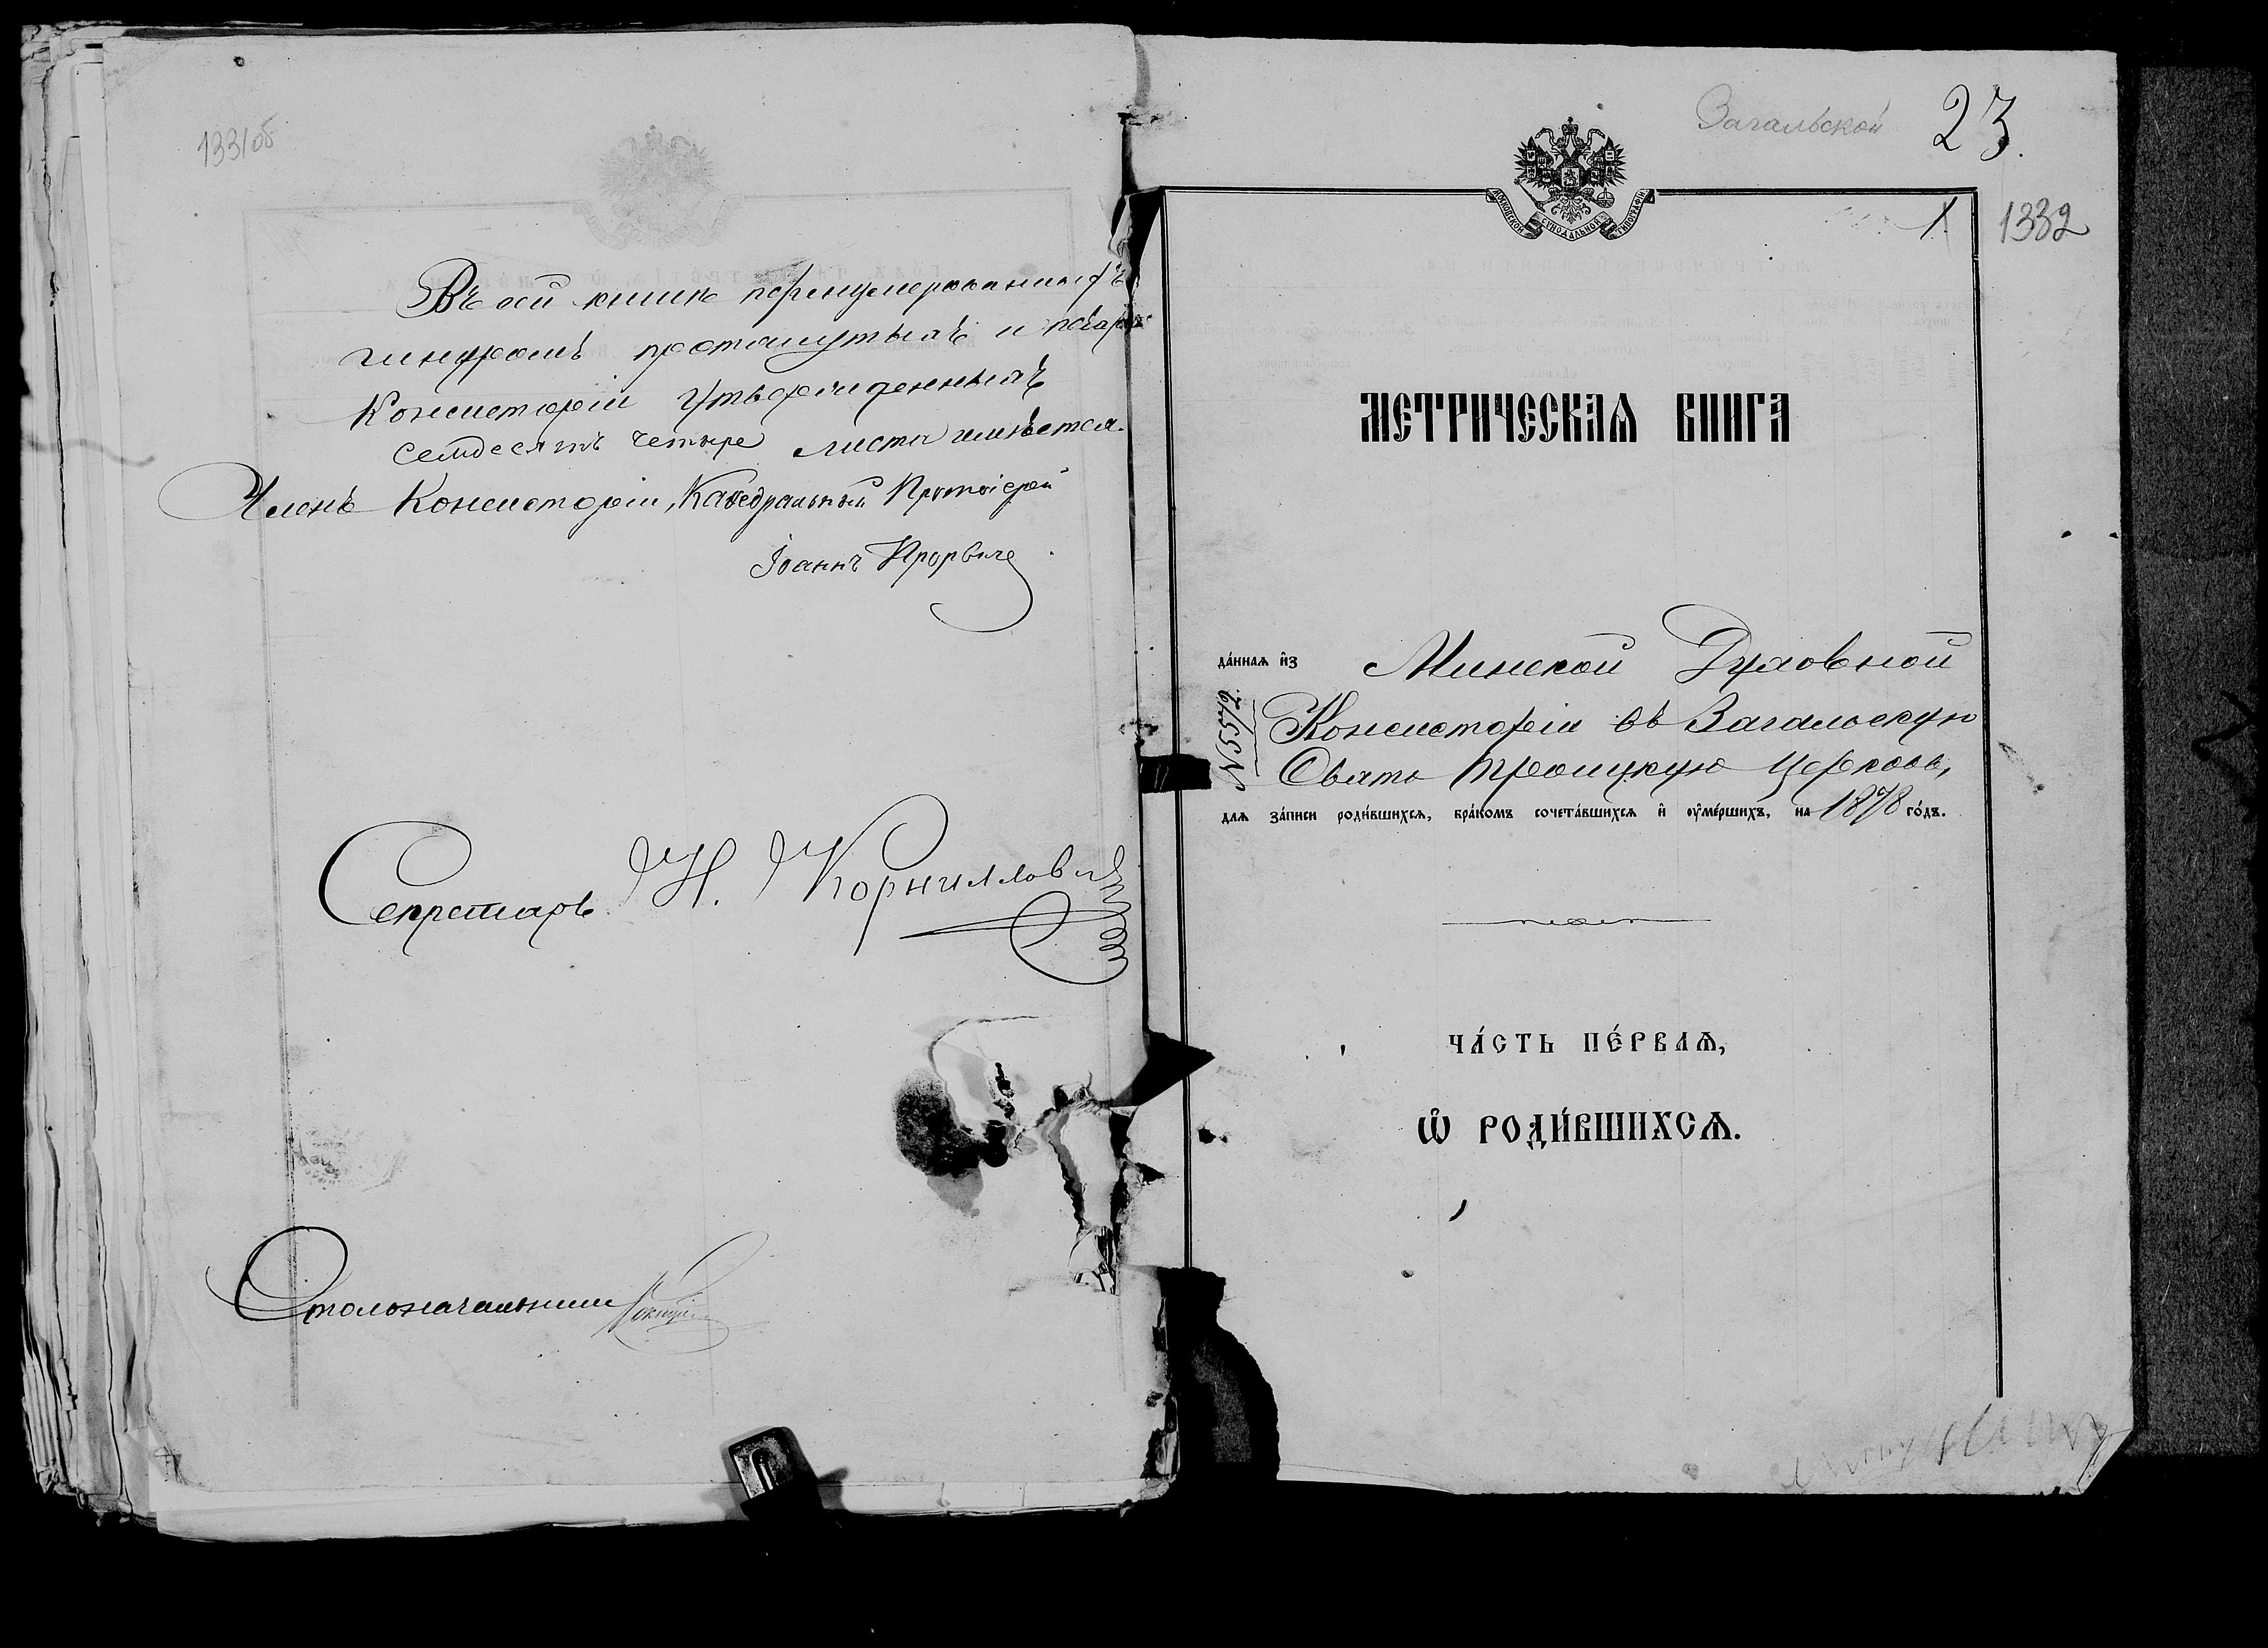 1331об
Въ сей книгѣ перенумерованныхъ
шнуромъ протянутыхъ и
Консисторіи утвержденныхъ
семдесятъ четыре листа имѣется.
Членъ Консисторіи, Каѳедральный Протоіерей
Іоаннъ
Секретарь Н. Корнилович
Столоначальникъ
Загальской 23.
МОСКОВСКОЙ СѴНОДАЛЬНОЙ ТИПОГРАФІИ
1 1332
МЕТРИЧЕСКАѦ КНИГА
да́ннаѧ и҆з Минской Духовной
Консисторіи въ Загальскую
Свято Троицкую церковь,
№5572
длѧ за́писи роди́вшихсѧ, бра́комъ сочета́вшихсѧ и҆ ѹ҆ме́ршихъ, на 1878 го́дъ.
ЧА́СТЬ ПЕ́РВАѦ,
Ѡ҆ РОДИ́ВШИХСѦ.